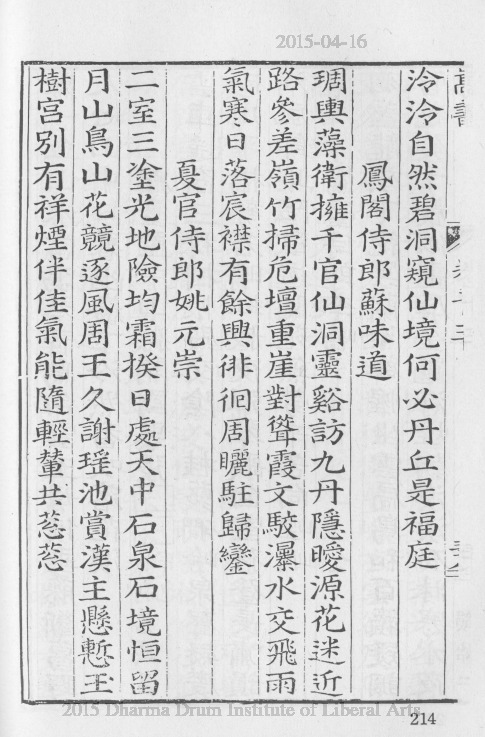 2015-04-16
泠泠自然碧洞窺仙境何必丹丘是福庭
鳳閣侍郎蘇味道
琱輿藻衛擁千官仙洞靈谿訪九丹隱曖源花迷近
路參差嶺竹掃危壇重崖對聳霞文駮瀑水交飛雨
氣寒日落宸襟有餘興徘徊周矚駐歸鑾
夏官侍郎姚元崇
二室三塗光地險均霜揆日處天中石泉石境恒留
月山鳥山花競逐風周王久謝瑤池賞漢主懸慙玉
樹宮別有祥煙伴佳氣能隨輕輦共葱葱
2015 Dharma Drum Institute of Liberal Arts
214